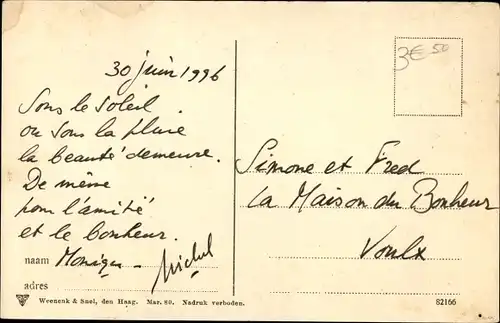 30 juin 1996
3€50
Sous le soleil
ou sous la pluie
la beauté demeure.
De même
pour l'amitié
et le bonheur.
naam Monique Michel
adres
Simone et Fred
La Maison du Bonheur
Voulx
Weenenk & Snel, den Haag. Mar. 80. Nadruk verboden.
82166